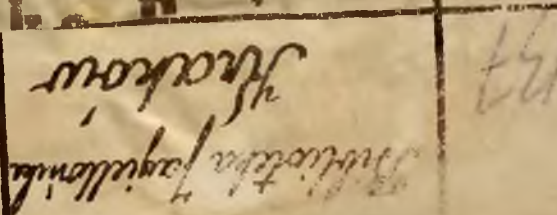 Biblioteka Jagiellońska
Kraków
137